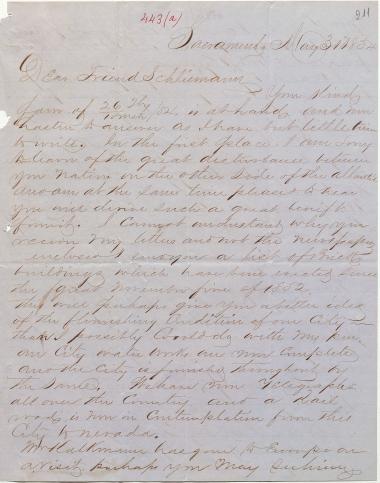 443(a)
211
Sacramento May 31 1854
Dear Friend Schliemann
Your kind
favor of 26 is at hand and now
hasten to answer as I have but little time
to write. In the first place I am sorry
to learn of the great disturbance between
your Nation on the other side of the Atlantic
and am at the same time pleased to hear
you will derive such a great benefit
I cannot understand why you
receive my letters and not the newspapers
enclosed I send you a list of Brick
buildings which have been erected since
the great November fire of 1852
this will perhaps give you a better idea
of the flourishing Condition of our City
than I possibly could do with my pen
our City water works are now Completed
and the City is furnished throughout by
the Same. We have now Telegraph
all over the Country and a Rail
road is now in Contemplation from this
City to Nevada.
Mr has gone to Europe on
a visit perhaps you May see him